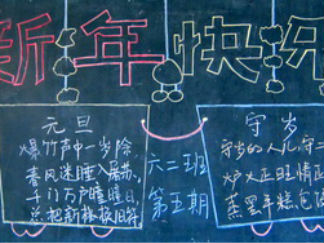 新年快乐
元旦
爆竹声中一岁除
春风送暖入屠苏
千门万户曈曈日
总把新桃换旧符
六二班
第五期
守岁
守岁的人儿,守二
炉火正旺情正
蒸罢年糕包